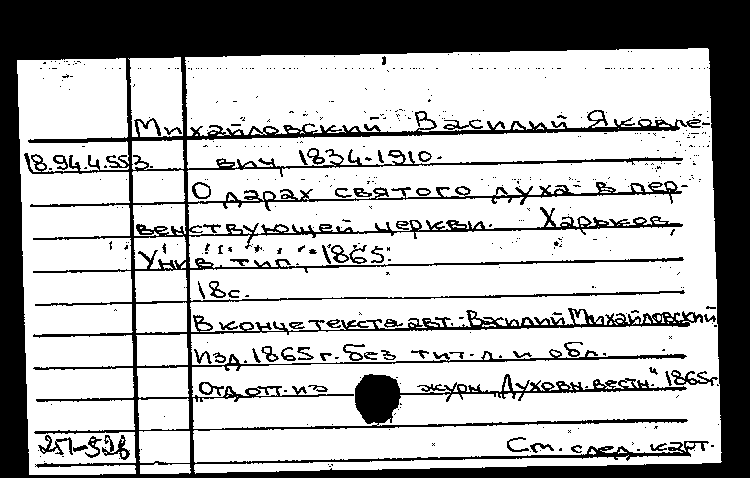 Михайловский Василий Яковле-
18.94.4.553. вич, 1834-1910.
О дарах святого духа в пер-
венствующей церкви. Харьков,
Унив. тип., 1865.
18с.
В конце текста авт.: Василий Михайловский
Изд. 1865 г. без тит. л. и обл.
"Отд. отт. из журн. "Духовн. вестн." 1865г.
См. след. карт.